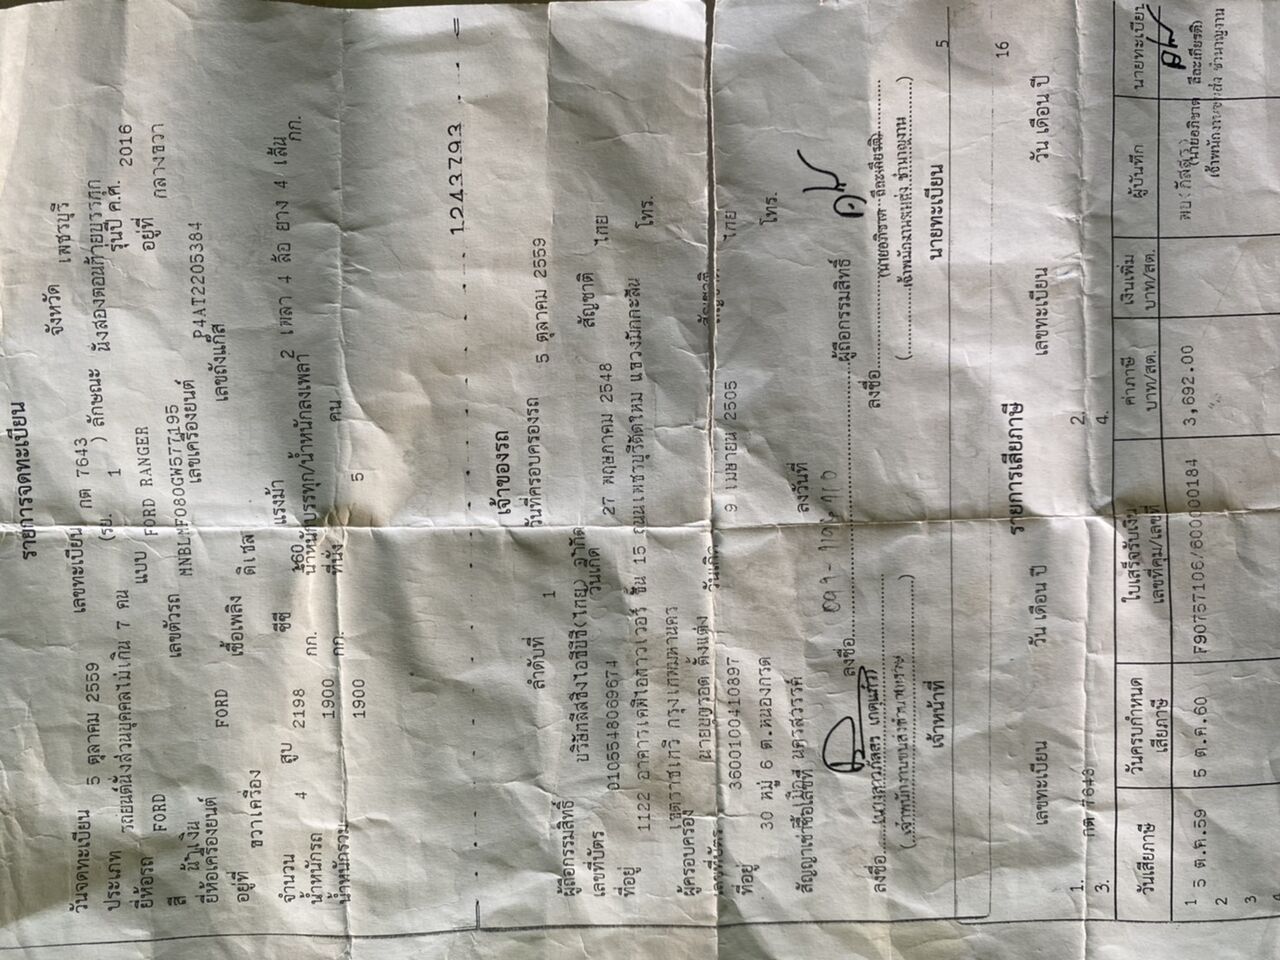 รายการจดทะเบียน
วันจดทะเบียน 5 ตุลาคม 2559 เลขทะเบียน กต 7643 จังหวัด เพชรบุรี
ประเภท รถยนต์นั่งส่วนบุคคลไม่เกิน 7 คน (รย. 1 ) ลักษณะ นั่งสองตอนท้ายบรรทุก
ยี่ห้อรถ FORD แบบ FORD RANGER รุ่นปี ค.ศ. 2016
สี น้ำเงิน เลขตัวรถ อยู่ที่ กลางขวา
ยี่ห้อเครื่องยนต์ FORD เลขเครื่องยนต์ P4AT2205384
อยู่ที่ ขวาเครื่อง เชื้อเพลิง ดีเซล เลขถังแก๊ส
จำนวน 4 สูบ 2198 ซีซี 160 แรงม้า 2 เพลา 4 ล้อ ยาง 4 เส้น
น้ำหนักรถ 1900 กก. น้ำหนักบรรทุก/น้ำหนักลงเพลา กก.
น้ำหนักรวม 1900 กก. ที่นั่ง 5 คน
1243793
เจ้าของรถ
ลำดับที่ 1 วันที่ครอบครองรถ 5 ตุลาคม 2559
ผู้ถือกรรมสิทธิ์ บริษัทลีสซิ่งไอซีบีซี(ไทย) จำกัด
เลขที่บัตร 0105548069674 วันเกิด 27 พฤษภาคม 2548 สัญชาติ ไทย
ที่อยู่ 1122 อาคารเคพีไอทาวเวอร์ ชั้น 15 ถนนเพชรบุรีตัดใหม่ แขวงมักกะสัน โทร.
เขตราชเทวี กรุงเทพมหานคร
ผู้ครอบครอง นายบุญรอด ตั้งแต่ง
เลขที่บัตร 3600100410897 วันเกิด 9 เมษายน 2505 สัญชาติ ไทย
ที่อยู่ 30 หมู่ 6 ต.หนองกรด โทร.
สัญญาเช่าซื้อเลขที่ นครสวรรค์ ลงวันที่
ลงชื่อ ผู้ถือกรรมสิทธิ์
ลงชื่อ ลงชื่อ
เจ้าหน้าที่ นายทะเบียน
5
16
รายการเสียภาษี
เลขทะเบียน วัน เดือน ปี เลขทะเบียน วัน เดือน ปี
1. กต 7643 2.
3. 4.
วันเสียภาษี วันครบกำหนดเสียภาษี ใบเสร็จรับเงิน เลขที่คุม/เลขที่ ค่าภาษี บาท/สต. เงินเพิ่ม บาท/สต. ผู้บันทึก นายทะเบียน
1 5 ต.ค.59 5 ต.ค.60 F90757106/600000184 3,692.00
2
3